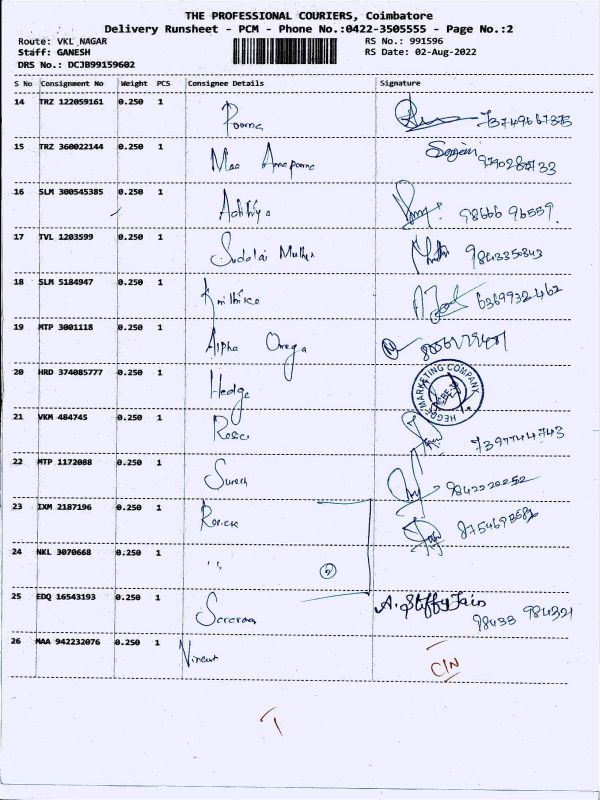 THE PROFESSIONAL COURIERS, Coimbatore
Delivery Runsheet - PCM - Phone No.:0422-3505555 - Page No.:2
Route: VKL NAGAR RS No.: 991596
Staff: GANESH RS Date: 02-Aug-2022
DRS No.: DCJB99159602
S No Consignment No Weight PCS Consignee Details Signature
14 TRZ 122059161 0.250 1 Poorna
15 TRZ 360022144 0.250 1 Maa
16 SLM 300545385 0.250 1 98666 96559
17 TVL 1203599 0.250 1 9843350843
18 SLM 5184947 0.250 1 6369932462
19 MTP 3001118 0.250 1 Alpha Omega
20 HRD 374085777 0.250 1 Hedge HEGDE MARKETING COMPANY
21 VKM 484745 0.250 1 7397744743
22 MTP 1172088 0.250 1 Suresh 9842220252
23 IXM 2187196 0.250 1
24 NKL 3070668 0.250 1 " 2
25 EDQ 16543193 0.250 1 A. Steffy Jain
98433 984321
26 MAA 942232076 0.250 1 Vincent C/N